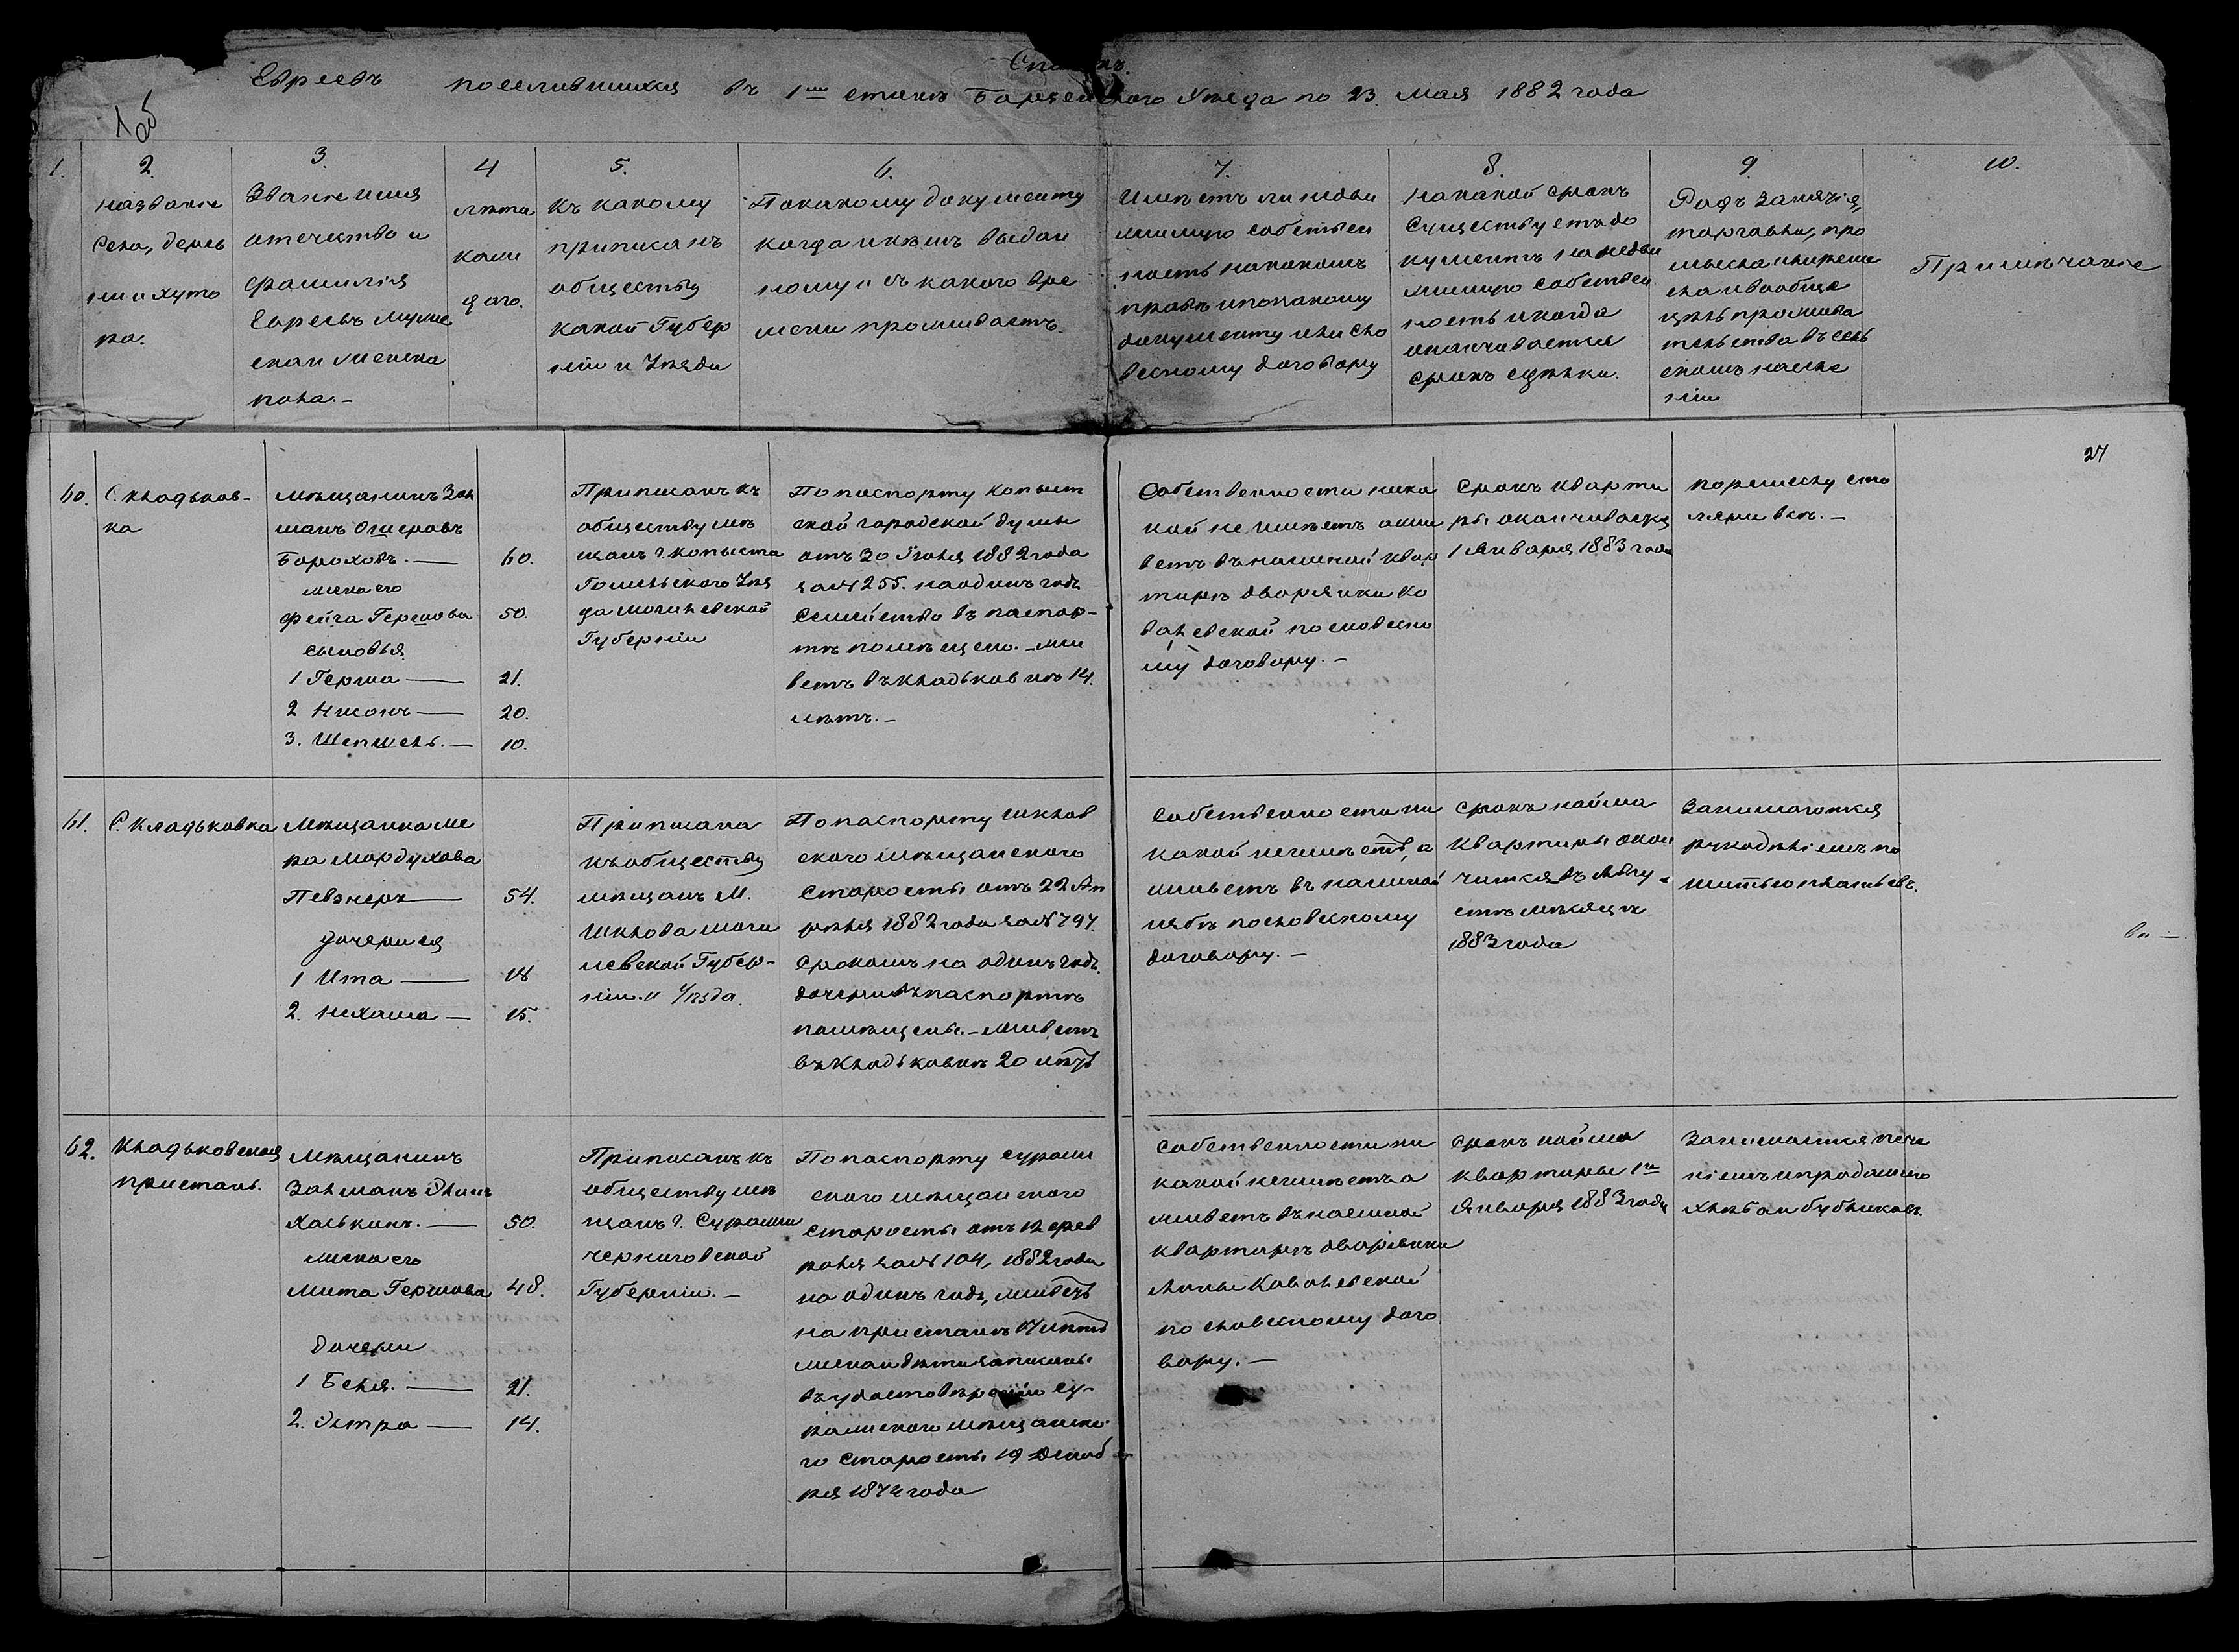 Списокъ
Евреевъ поселившихся въ 1мъ станѣ Борзенского Уѣзда по 23. мая 1882 года
1об
1.
2.
Названіе
Села, дерев
ни и хуто
ра.
3.
Званіе имя
отечество и
фамилія
Евреевъ муже
скаи женска
пола.-
4
лѣта
каж
даго.
5.
Къ какому
приписанъ
обществу
какой Губер
ніи и Уѣзда
6.
По какому документу
когда и кѣмъ выдан
ному и съ какого вре
мени проживаетъ.
7.
Имѣетъ ли недви
жимую собствен
ность на какомъ
правѣ и по какому
документу или сло
весному договору
8.
На какой срокъ
существуетъ до
кументъ на недви
жимую собствен
ность и когда
оканчивается
срокъ сдѣлки.
9.
Родъ занятія,
торговли, про
мысла и ремес
ла и вообще
цѣль прожива
тельства въ сель
скомъ населе
ніи
10.
Примѣчаніе
27
60.
С. Кладьков-
ка
Мѣщанинъ Зал
манъ Ошеровъ
Бороховъ. — 60.
жена его
Фейга Гершова 50.
сыновья.
1 Герша — 21.
2 Нисонъ — 20.
3. Шепшель. — 10.
Приписанъ къ
обществу мѣ
щанъ г. Копыста
Гомельского Уѣз
да Могилевской
Губерніи
По паспорту Копыст
ской городской думы
отъ 30 Іюня 1882 года
за № 255. на одинъ годъ
Семейство въ паспор-
тѣ помѣщено. - жи
ветъ въ Кладьковкѣ 14.
лѣтъ. -
Собственности ника
кой не имѣетъ а жи
ветъ въ наемной квар
тирѣ дворянки Ко
валевской по словесно
му договору. -
Срокъ кварти
ры оканчивается
1 Января 1883 года
по ремеслу сто
лярн
61.
С. Кладьковка
Мѣщанка Ме
ра Мордухова
Певзнеръ — 54.
дочери ея
1 Ита — 18
2. Нехама — 15.
Приписана
къ обществу
мѣщанъ М.
Шклова Моги
левской Губер-
ніи. и Уѣзда.
По паспорту Шклов
ского мѣщанского
старосты отъ 22 Ап
рѣля 1882 года за № 797.
срокомъ на одинъ годъ.
дочери въ паспортѣ
помѣщены. - живетъ
въ Кладьковкѣ 20 лѣтъ
Собственности ни
какой не имѣетъ, а
живетъ въ наемной
избѣ по словесному
договору. -
Срокъ найма
квартиры окон
чится въ Авгу-
стѣ мѣсяцѣ
1883 года
Занимаются
рукодѣліемъ по
шитью платьевъ.
62.
Кладьковская
пристань.
Мѣщанинъ
Залманъ
Хаськинъ. — 50.
жена его
Мита Гершова 48.
Дочери
1 Беля. — 21.
2. Эстра — 14.
Приписанъ къ
обществу мѣ
щанъ г. Суражи
Черниговской
Губерніи. -
По паспорту Сураж
ского мѣщанского
старосты отъ 12 фев
раля за № 104, 1882 года
на одинъ годъ, живетъ
на пристанѣ 17 лѣтъ
жена и дѣти записаны
въ удостовѣреніи Су-
ражского мѣщанско
го старосты 19 Декаб
ря 1872 года
Собственности ни
какой не имѣетъ а
живетъ въ наемной
квартирѣ дворянки
Анны Ковалевской
по словесному дого
вору. -
Срокъ найма
квартиры 1го
Января 1883 года
Занимается пече
ніемъ и продажею
хлѣба и бубликовъ.